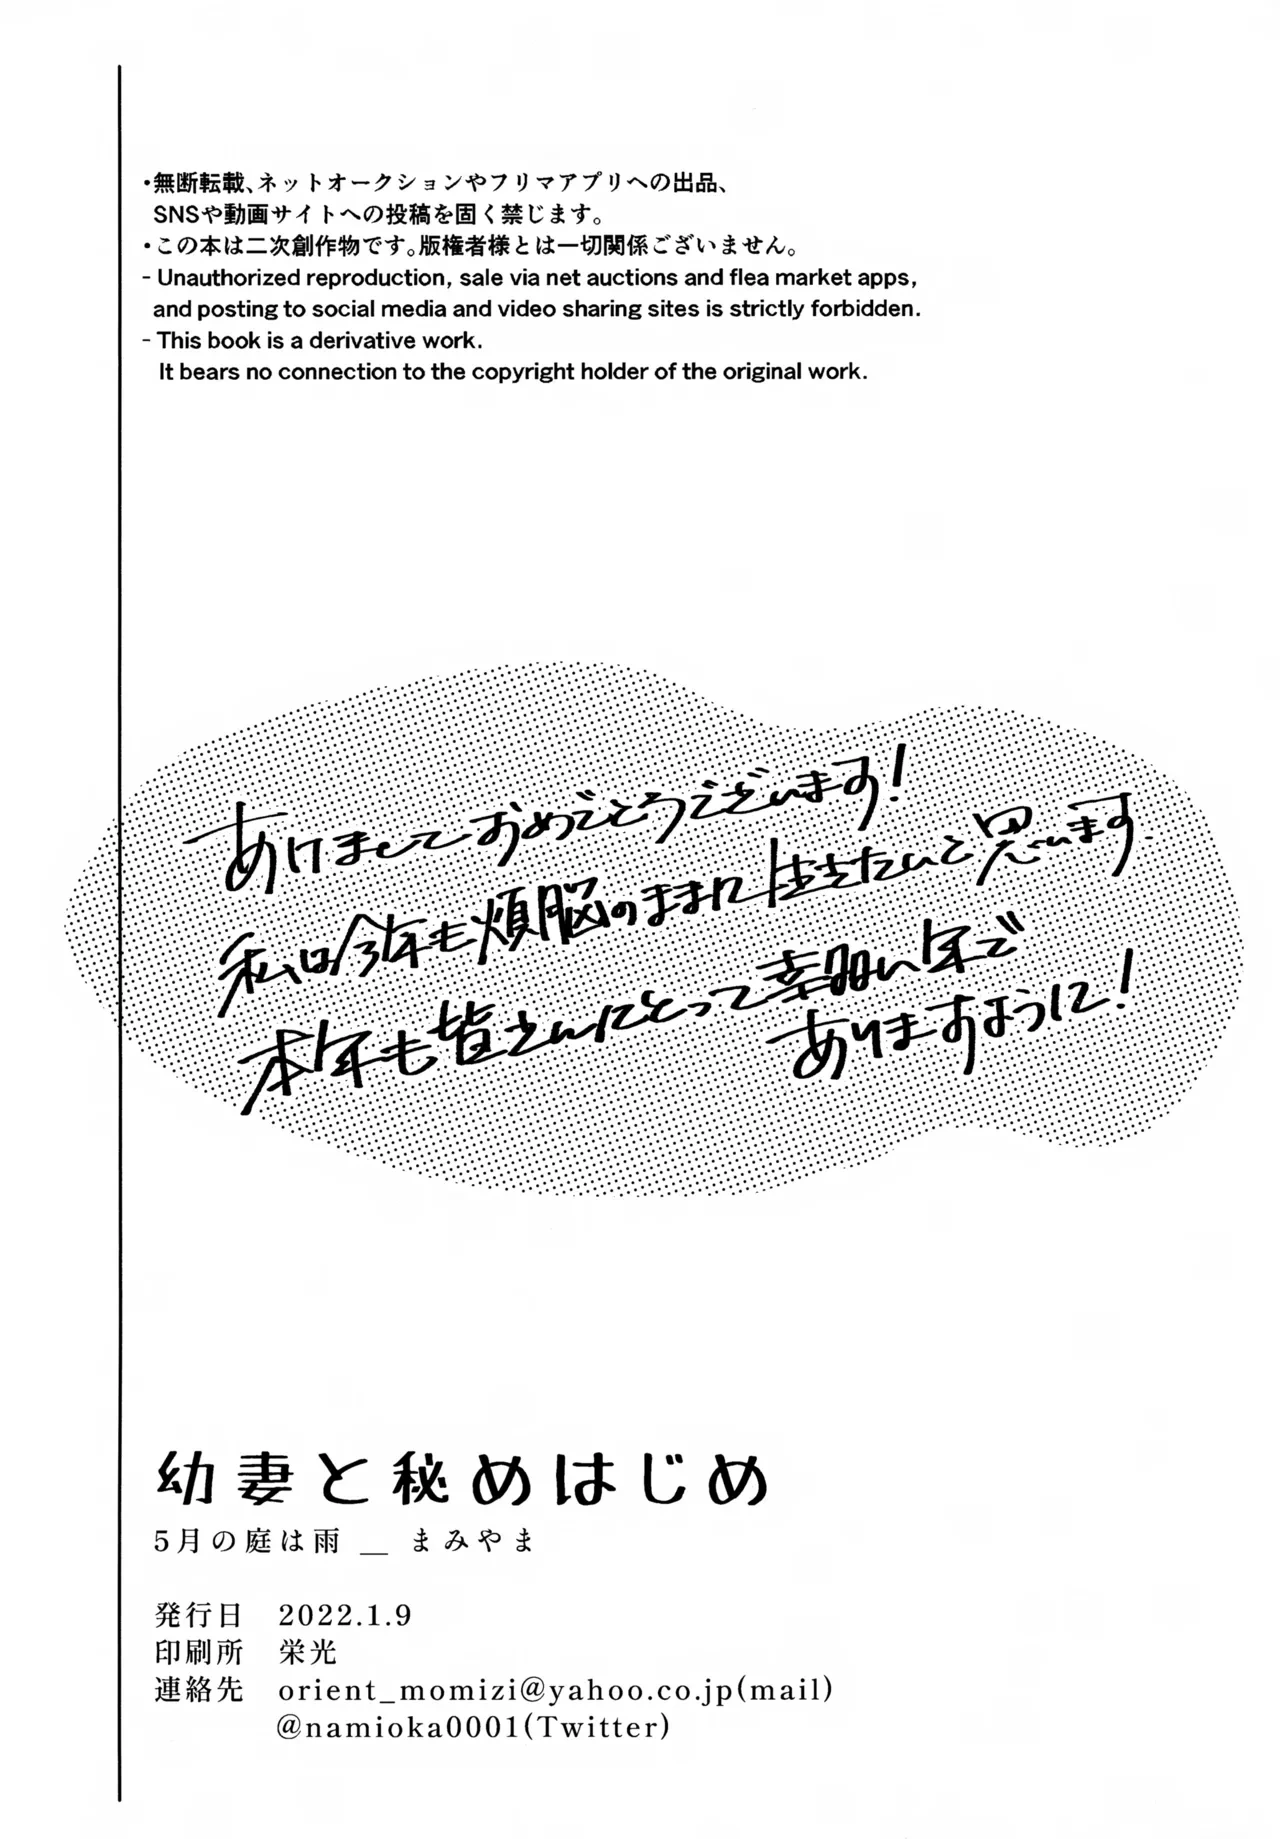 ・無断転載、ネットオークションやフリマアプリへの出品、
SNSや動画サイトへの投稿を固く禁じます。
・この本は二次創作物です。版権者様とは一切関係ございません。
- Unauthorized reproduction, sale via net auctions and flea market apps,
and posting to social media and video sharing sites is strictly forbidden.
- This book is a derivative work.
It bears no connection to the copyright holder of the original work.
あけましておめでとうございます!
私は今年も煩脳のままに生きたいと思います.
本年も皆さんにとって幸多い年で
ありますように!
幼妻と秘めはじめ
5月の庭は雨 __ まみやま
発行日 2022.1.9
印刷所 栄光
連絡先 orient_momizi@yahoo.co.jp(mail)
@namioka0001(Twitter)